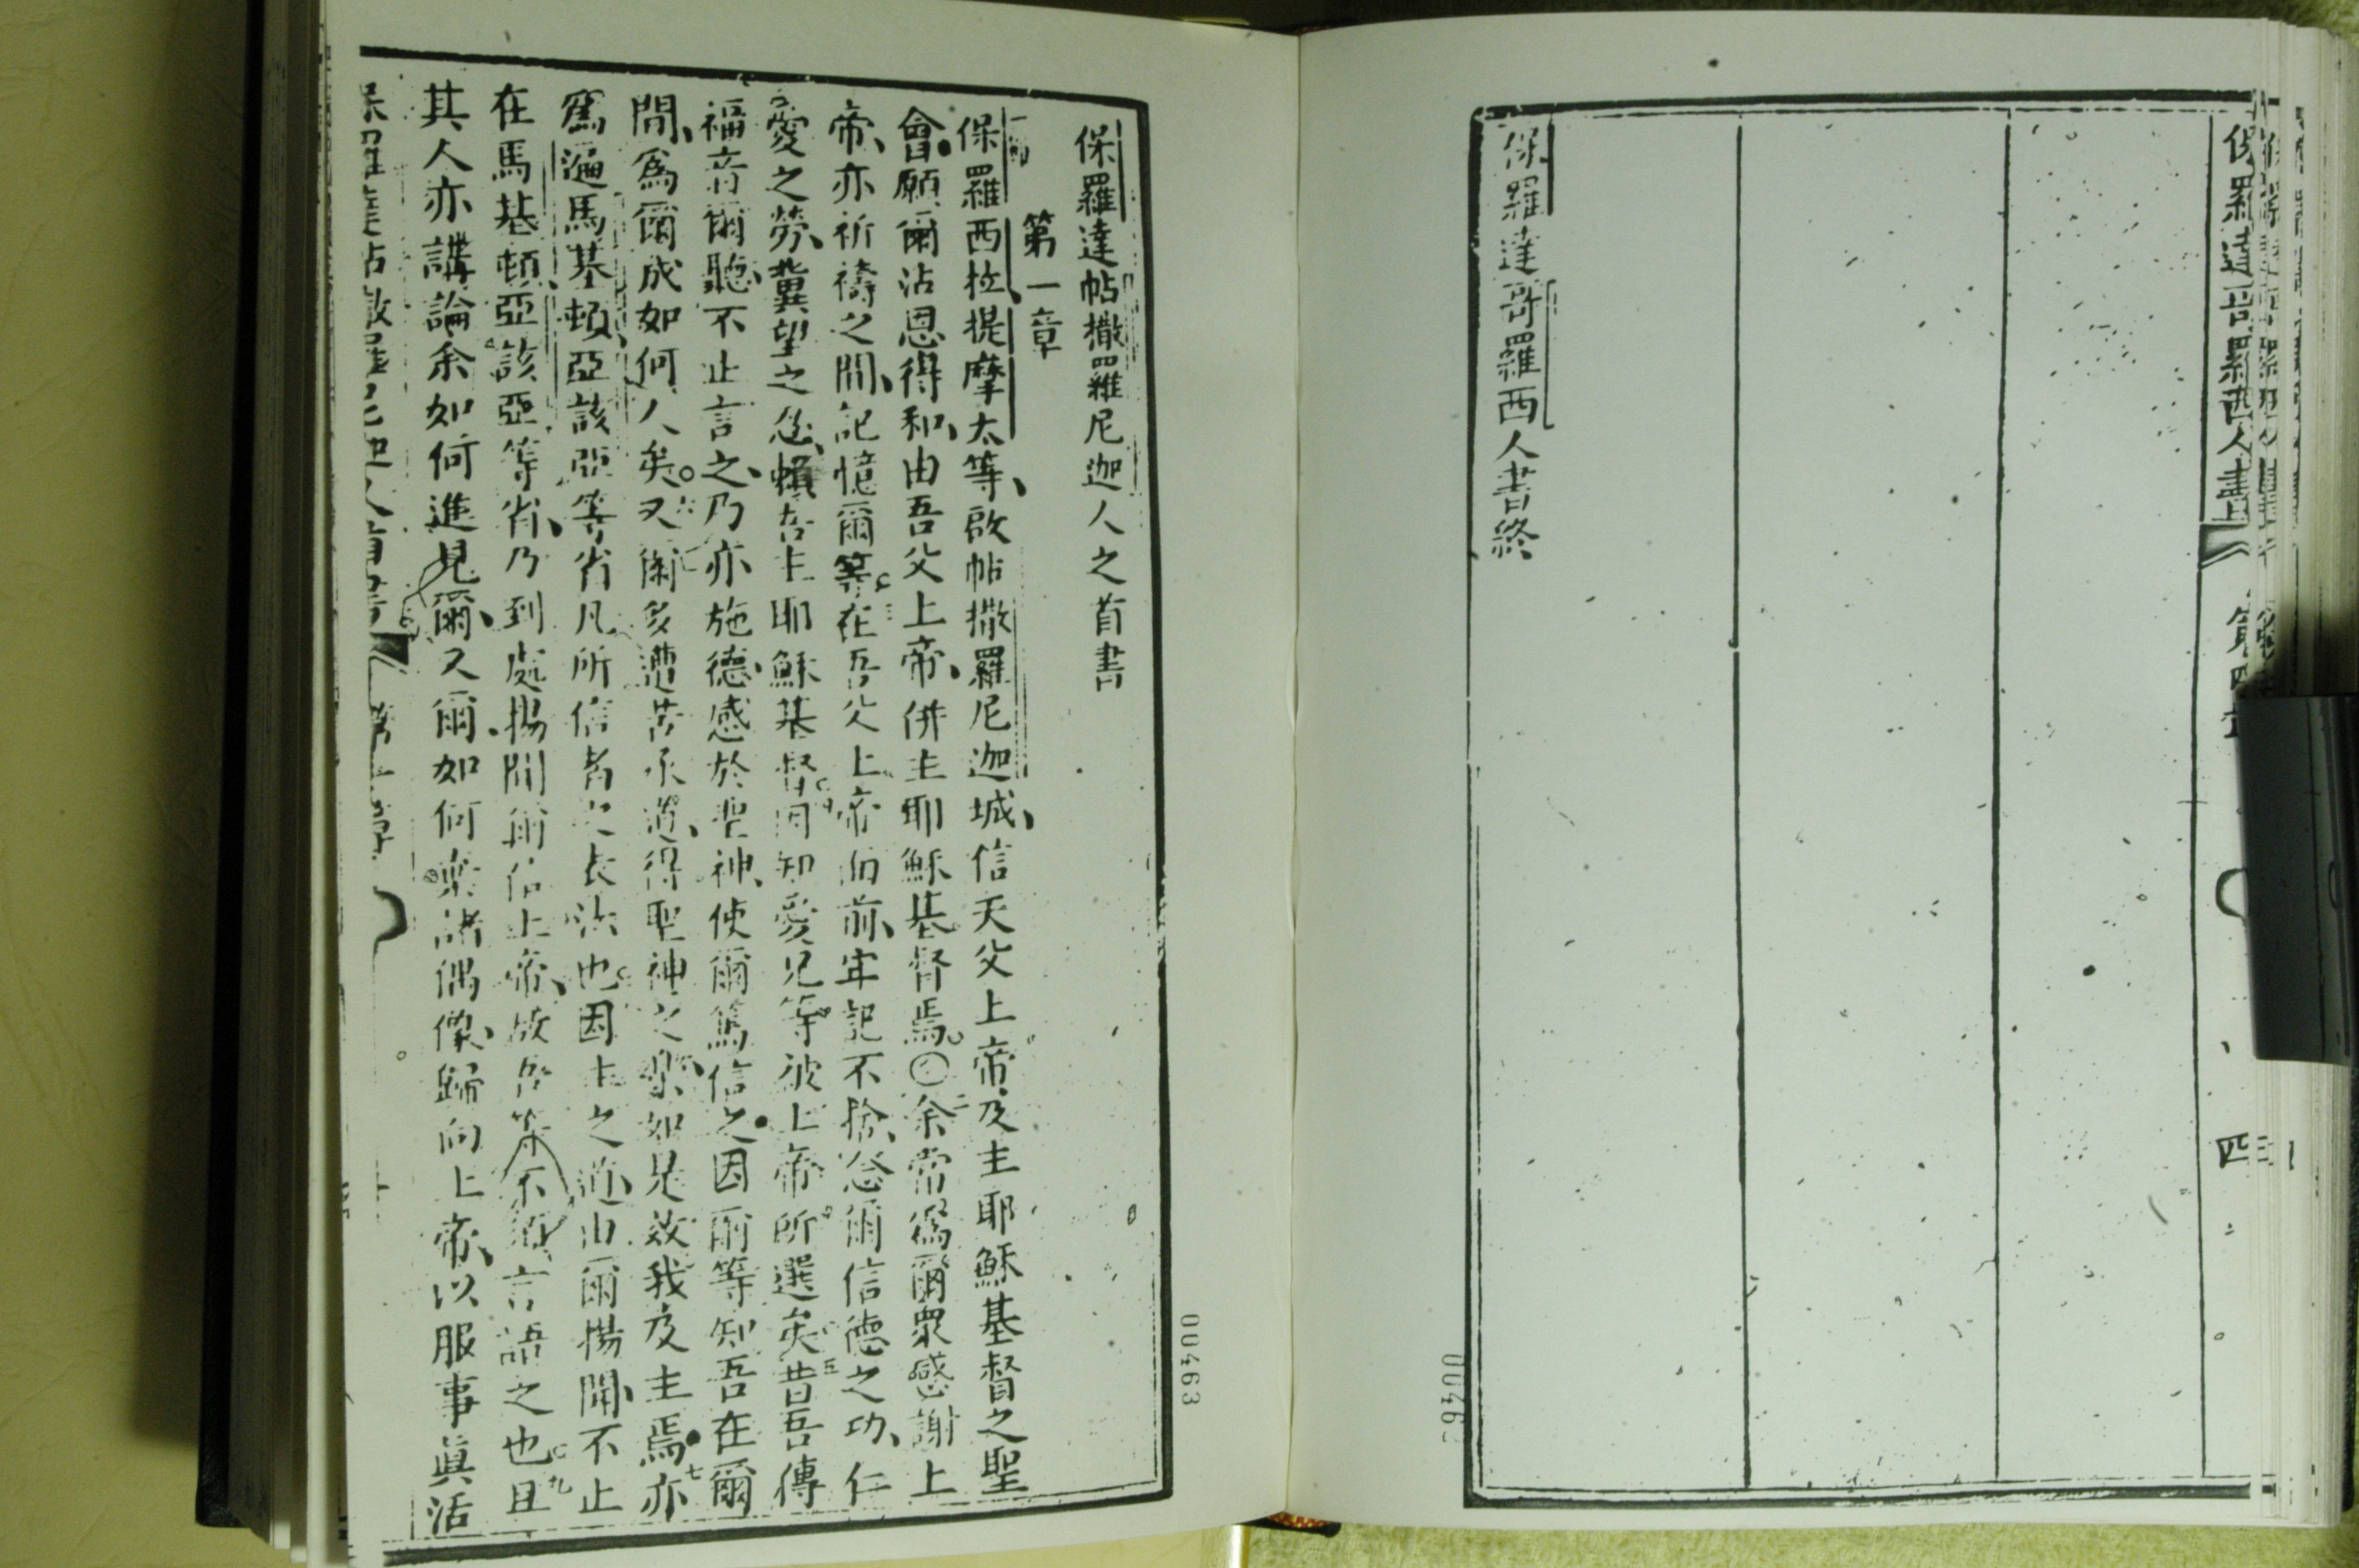 保羅達哥羅西人書
四
保羅達哥羅西人書終
保羅達帖撒羅尼迦人之首書
第一章
保羅西拉提摩太等、啟帖撒羅尼迦城、信天父上帝、及主耶穌基督之聖
會、願爾沾恩得和、由吾父上帝、併主耶穌基督焉。○二余常爲爾眾感謝上
帝、亦祈禱之間、記憶爾等。三在吾父上帝面前、牢記不捨、念爾信德之功、仁
愛之勞、冀望之忍、賴吾主耶穌基督。四因知愛兄等、彼上帝所選矣。五昔吾傳
福音爾聽、不止言之、乃亦施德、感於聖神、使爾篤信之。因爾等知吾在爾
間、爲爾成如何人矣。六又爾多遭苦承道、得聖神之樂、如是效我及主焉。七亦
爲遍馬基頓亞該亞等省凡所信者之表法也。因主之道、由爾揚聞、不止
在馬基頓亞該亞等省、乃到處揚聞爾信上帝、故吾等不須言語之也。九且
其人亦講論余如何進見爾、又爾如何棄諸偶像、歸向上帝、以服事眞活
00463